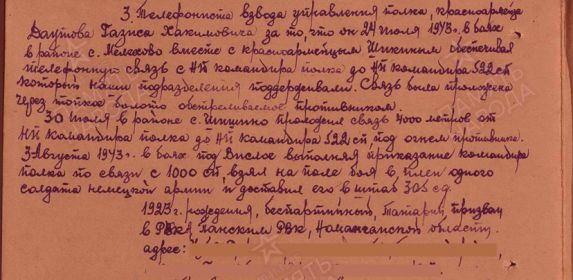 3. Телефониста взвода управления полка, красноармейца
Даутова Газиса Хакимовича за то, что он 24 июля 1943г. в боях
в районе с. Мелехово вместе с красноармейцем Шикиным обеспечивая
телефонную связь с НП командира полка до НП командира 522 сп
который наши подразделения поддерживали. Связь была проложена
через топкое болото обстреливаемое противником.
30 июля в районе с. проложив связь 4000 метров от
НП командира полка до НП командира 522 сп, под огнем противника.
3 Августа 1943г. в боях под выполняя приказание командира
полка по связи с 1000 сп, взял на поле боя в плен одного
солдата немецкой армии и доставил его в штаб 305 сд.
1923 г. рождения, беспартийный, татарин, призван
в РККА, РВК, Наманганской области.
адрес: